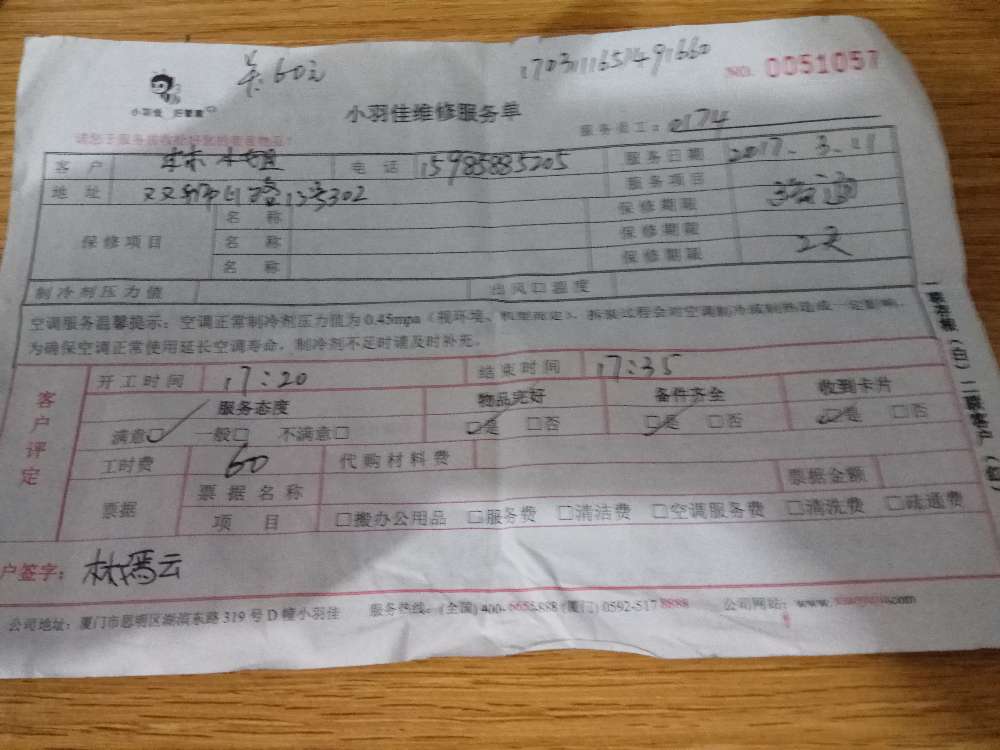 60元 1703111651491660
NO. 0051057
小羽佳 好管家
小羽佳维修服务单
服务员工：0174
请您于服务前收拾好您的贵重物品！
客户 林小姐 电话 15985885205 服务日期 2017.3.11
地址 13号302 服务项目
保修项目 名称 保修期限
名称 保修期限
名称 保修期限 2天
制冷剂压力值 出风口温度
空调服务温馨提示：空调正常制冷剂压力值为0.45mpa（视环境、机型而定）、拆装过程会对空调制冷或制热造成一定影响，
为确保空调正常使用延长空调寿命，制冷剂不足时请及时补充。
客户评定
开工时间 17:20 结束时间 17:35
服务态度 物品完好 备件齐全 收到卡片
满意□ 一般□ 不满意□ □是 □否 □是 □否 □是 □否
工时费 60 代购材料费
票据 票据名称 票据金额
项目 □搬办公用品 □服务费 □清洁费 □空调服务费 □清洗费 □疏通费
户签字：林 云
公司地址：厦门市思明区湖滨东路319号D幢小羽佳 服务热线：(全国)400-6655888 (厦门)0592-5178888 公司网站：www.
一联存根（白）二联客户